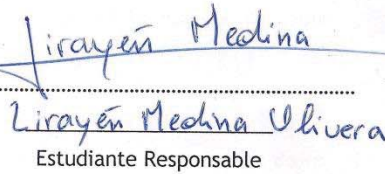 Lirayén Medina
Lirayén Medina Olivera
Estudiante Responsable